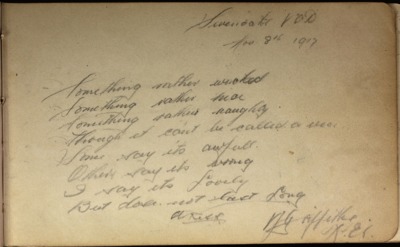 Nov 8th 1917
Something rather wicked
Something rather nice
Something rather naughty
Though it can't be called a vice.
Some say its awful
Others say its wrong
I say its lovely
But does not last long
a kiss
Griffiths
R.E.